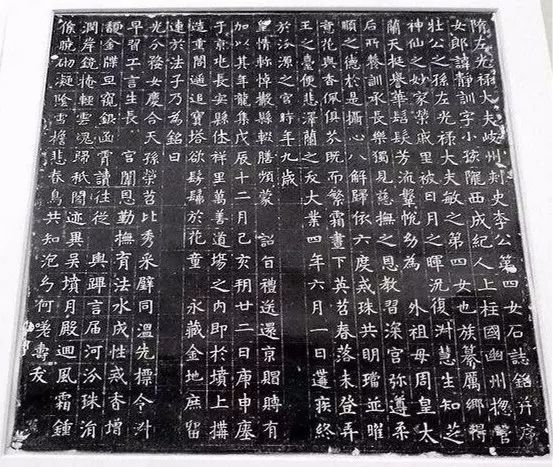 隋左光祿大夫岐州刺史李公第四女石誌銘并序
女郎諱靜訓字小孩隴西成紀人上柱國幽州揔管
壯公之孫左光祿大夫敏之第四女也族纂厲鄉得
神仙之妙家榮戚里被日月之暉況復淑慧生知芝
蘭天挺譽華髫髮芳流鞶帨幼為外祖母周皇太
后所養訓承長樂獨見慈撫之恩教習深宮弥遵柔
順之德於是攝心八解歸依六度戒珠共明璫並曜
意花與香佩俱芬既而繁霜晝下英苕春落未登弄
玉之臺便悲澤蘭之夭大業四年六月一日遘疾終
於汾源之宮時年九歲
皇情軫悼撤縣輟膳頻蒙詔旨禮送還京賵賻有
加以其年龍集戊辰十二月己亥朔廿二日庚申瘞
于京兆長安縣休祥里萬善道場之內即於墳上構
造重閣遙追寶塔欲髣髴於花童永藏金地庶留
連於法子乃為銘曰
光分婺女慶合天孫榮苕比秀采璧同溫先標令淑
早習工言生長宮闈恩勤撫育法水成性戒香增
馥金牒旦窺銀函宵讀往從輿蹕言屆河汾珠涓
潤岸鏡掩輕雲魂歸秖閣迹異吳墳月殿迴風霜鍾
候曉砌凝陰雪檐悲春鳥共知泡幻何嗟壽夭